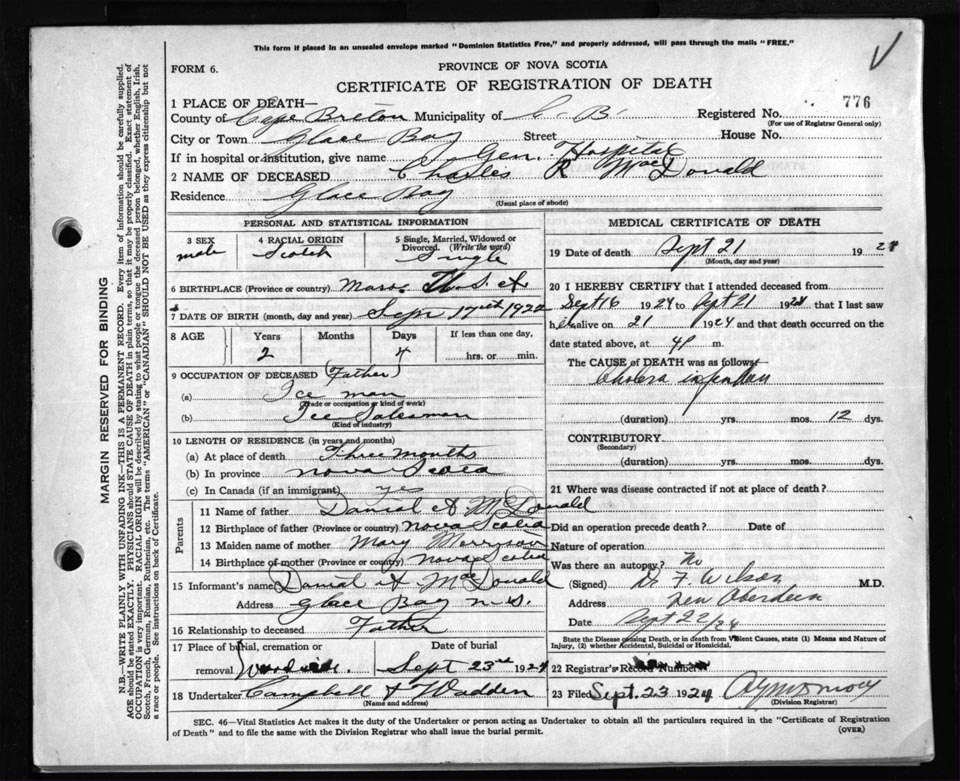 This form if placed in an unsealed envelope marked "Dominion Statistics Free," and properly addressed, will pass through the mails "FREE."
FORM 6.
PROVINCE OF NOVA SCOTIA
CERTIFICATE OF REGISTRATION OF DEATH
1 PLACE OF DEATH—
776
County of Cape Breton Municipality of C. B. Registered No.
(For use of Registrar General only)
City or Town Glace Bay Street House No.
If in hospital or institution, give name Gen. Hospital
2 NAME OF DECEASED Charles R MacDonald
Residence Glace Bay
(Usual place of abode)
PERSONAL AND STATISTICAL INFORMATION
3 SEX male
4 RACIAL ORIGIN Scotch
5 Single, Married, Widowed or Divorced. (Write the word) Single
6 BIRTHPLACE (Province or country) Mass U.S.A
7 DATE OF BIRTH (month, day and year) Sept 17th 1922
8 AGE Years Months Days If less than one day,
2 4 hrs. or min.
9 OCCUPATION OF DECEASED (Father)
(a) Ice man
(Trade or occupation or kind of work)
(b) Ice Salesman
(Kind of industry)
10 LENGTH OF RESIDENCE (in years and months)
(a) At place of death Three months
(b) In province Nova Scotia
(c) In Canada (if an immigrant) yes
Parents
11 Name of father Danial A McDonald
12 Birthplace of father (Province or country) Nova Scotia
13 Maiden name of mother Mary Morryson
14 Birthplace of mother (Province or country) Nova Scotia
15 Informant's name Danial A MacDonald
Address Glace Bay N.S.
16 Relationship to deceased Father
17 Place of burial, cremation or Date of burial
removal Sept 23rd 1924
18 Undertaker Campbell & Wadden
(Name and address)
MEDICAL CERTIFICATE OF DEATH
19 Date of death Sept 21 1924
(Month, day and year)
20 I HEREBY CERTIFY that I attended deceased from
Sept 16 1924 to Sept 21 1924 that I last saw
him alive on 21 1924 and that death occurred on the
date stated above, at 4 P m.
The CAUSE of DEATH was as follows
Cholera infantum
(duration) yrs. mos. 12 dys.
CONTRIBUTORY
(Secondary)
(duration) yrs. mos. dys.
21 Where was disease contracted if not at place of death?
Did an operation precede death? Date of
Nature of operation
Was there an autopsy? No
(Signed) D. F. Wilson M.D.
Address New Aberdeen
Date Sept 22/24
State the Disease causing Death, or in death from Violent Causes, state (1) Means and Nature of Injury, (2) whether Accidental, Suicidal or Homicidal.
22 Registrar's Record Number
23 Filed Sept. 23 1924
(Division Registrar)
SEC. 46—Vital Statistics Act makes it the duty of the Undertaker or person acting as Undertaker to obtain all the particulars required in the "Certificate of Registration
of Death" and to file the same with the Division Registrar who shall issue the burial permit.
(OVER)
MARGIN RESERVED FOR BINDING
N.B.—WRITE PLAINLY WITH UNFADING INK—THIS IS A PERMANENT RECORD. Every item of information should be carefully supplied.
AGE should be stated EXACTLY. PHYSICIANS should STATE CAUSE OF DEATH in plain terms, so that it may be properly classified. Exact statement of
OCCUPATION is very important. RACIAL ORIGIN will be described by stating to what people or tongue the deceased person belonged, whether English, Irish,
Scotch, French, German, Russian, Ruthenian, etc. The terms "AMERICAN" or "CANADIAN" SHOULD NOT BE USED as they express citizenship but not
a race or people. See instructions on back of Certificate.